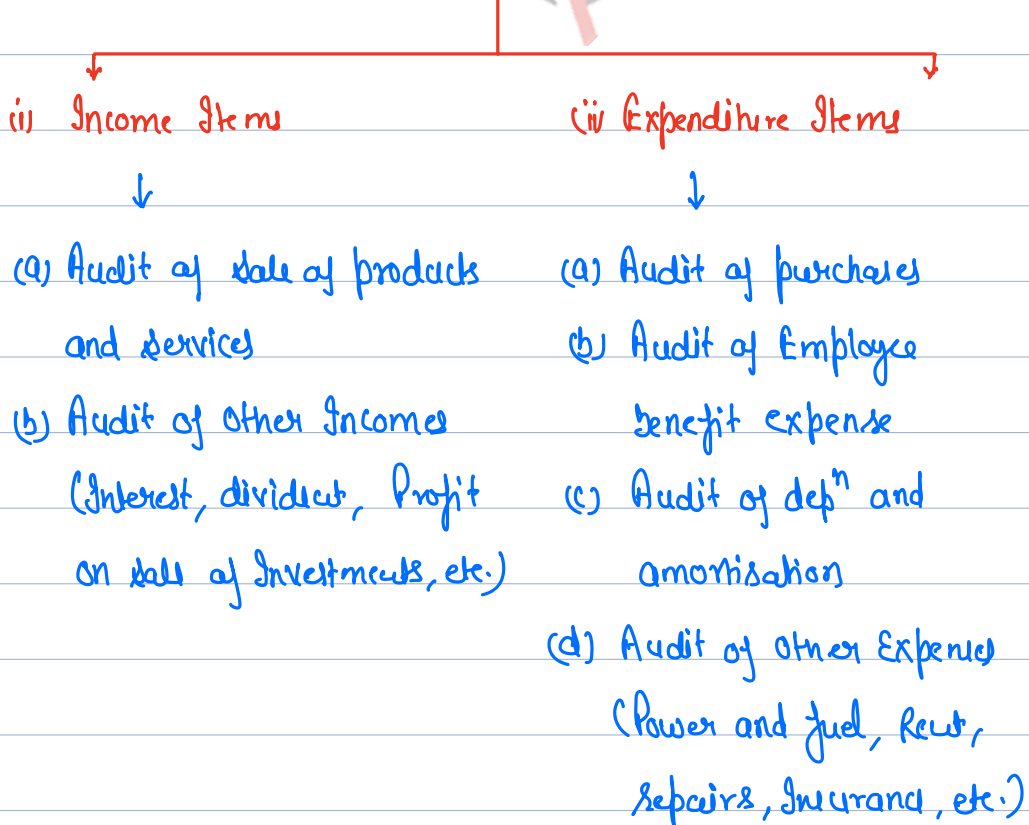 (i) Income Items
(ii) Expenditure Items
(a) Audit of sale of products
and services
(b) Audit of Other Incomes
(Interest, dividend, Profit
on sale of Investments, etc.)
(a) Audit of purchases
(b) Audit of Employee
benefit expense
(c) Audit of depⁿ and
amortisation
(d) Audit of Other Expenses
(Power and fuel, Rent,
repairs, Insurance, etc.)